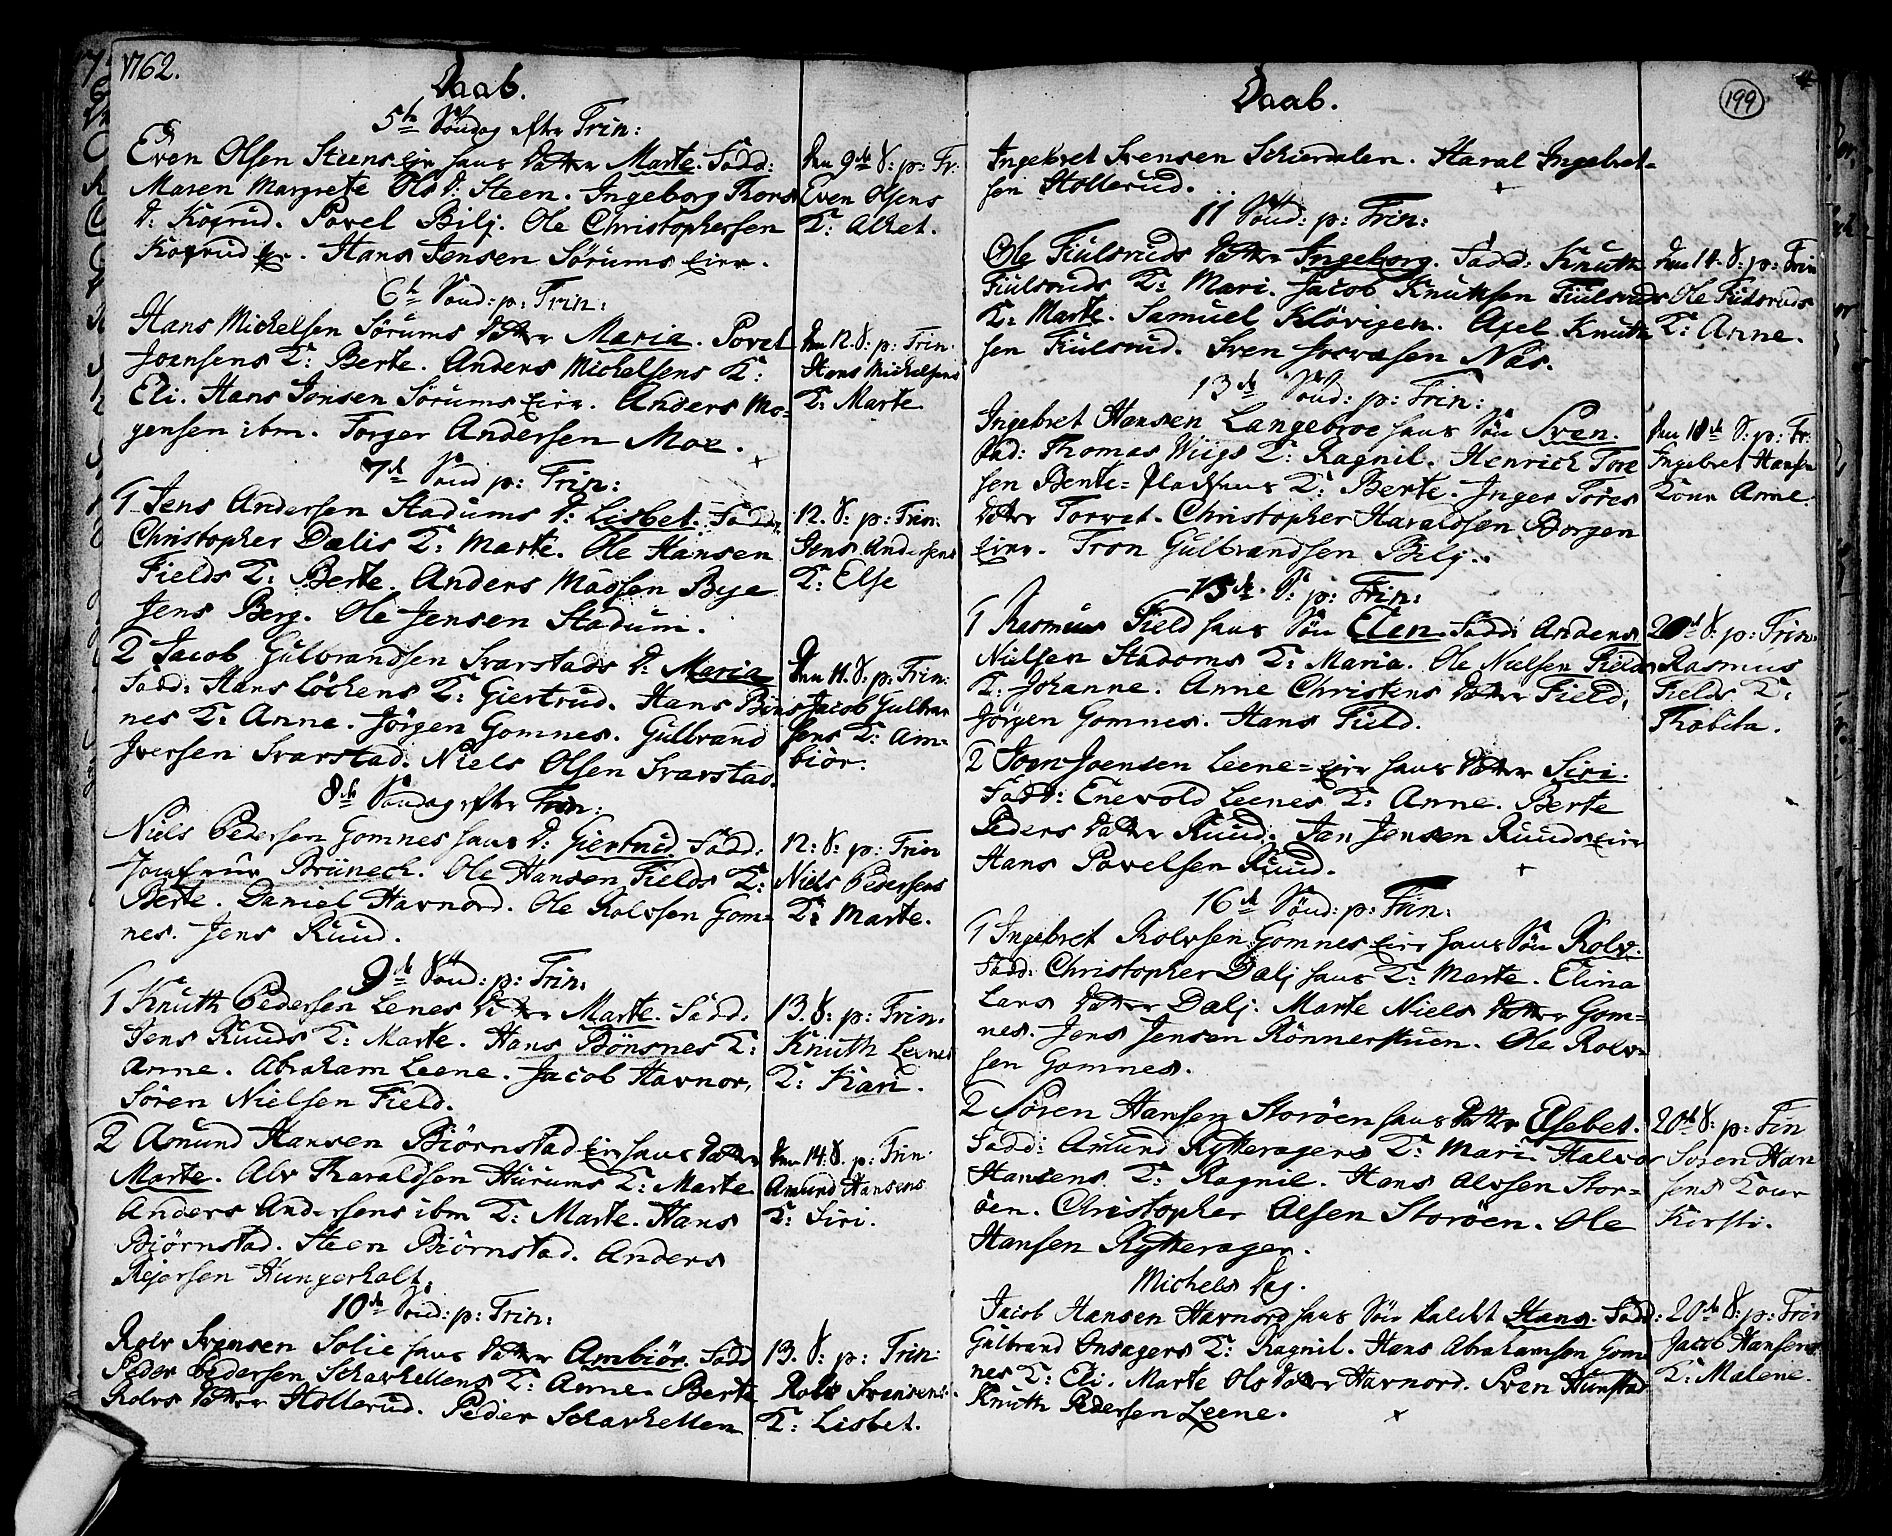 1762.
Daab.
5te Söndag efter Trin:
Even Olsen Steens eier hans Datter Marte. Fadd:
Maren Margrete Ols D. Steen. Ingeborg Thors
D: Koxrud. Povel Bilj. Ole Christophersen
Koxrud. Hans Jensen Sörums eier.
6te Sönd: p: Trin:
Hans Michelsen Sörums Datter Maria. Povel
Joensens K: Berte. Anders Michelsens K:
Eli. Hans Jonsen Sörums eier. Anders Mo-
gensen ibm. Torger Andersen Moe.
7de Sönd p: Trin:
1 Jens Andersen Stadums D: Lisbet. Fadd:
Christopher Dælis K: Marte. Ole Hansen
Fields K: Berte. Anders Madsen Bye
Jens Berg. Ole Jensen Stadum.
2 Jacob Gulbrandsen Svarstads D: Maria
Fadd: Hans Löckens K: Giertrud. Hans Böns
nes K: Anne. Jörgen Gomnes. Gulbrand
Iversen Svarstad. Niels Olsen Svarstad.
8de Söndag efter Trin:
Niels Pedersen Gomnes hans D: Giertrud. Fadd:
Jomfrue Brünech. Ole Hansen Fields K:
Berte. Daniel Havnord. Ole Rolvsen Gom-
nes. Jens Ruud.
9de Sönd: p: Trin:
1 Knuth Pedersen Lenes Datter Marte. Fadd:
Jens Ruuds K: Marte. Hans Bönsnes K:
Anne. Abraham Leene. Jacob Havnor,
Sören Nielsen Field.
2 Amund Hansen Biörnstad eier hans Datter
Marte. Alv Haraldsen Hurums K: Marte
Anders Andersens ibm K: Marte. Hans
Biörnstad. Steen Biörnstad. Anders
Rejersen Hungerholt.
10de Sönd: p: Trin:
Rolv Svensen Solie hans Datter Ambiör. Fadd
Peder Pedersen Scharkellens K: Anne. Berte
Rolvs Datter Hollerud. Peder Scharkellen
Den 9de S: p: Tr:
Even Olsens
K: Alhet.
Den 12. S: p: Trin:
Hans Michelsens
K: Marte
12. S: p: Trin:
Jens Andersens
K: Else
Den 11. S: p: Trin:
Jacob Gulbran
sens K: Am-
biör.
12. S: p: Trin
Niels Pedersens
K: Marte.
13. S: p: Trin.
Knuth Leenes
K: Kari.
Den 14. S. p: Trin.
Amund Hansens
K: Siri.
13. S: p: Trin:
Rolv Svensens
K: Lisbet.
199
Daab.
Ingebret Svensen Schierdalen. Haral Ingebret-
sen Hollerud.
11 Sönd: p: Trin:
Ole Fiulsruds Datter Ingeborg. Fadd: Knuth
Fiulsruds K: Mari. Jacob Knuthsen Fiulsruds
K: Marte. Samuel Klövigen. Axel Knuth
sen Fiulsrud. Sven Næs.
13de Sönd: p: Trin:
Ingebret Hansen Langebroe hans Sön Sven.
Fad: Thomas Wiigs K: Ragnil. Henrich Tore
sen Bente- K: Berte. Inger Tores
Datter Torvet. Christopher Haraldsen Borgen
eier. Tron Gulbrandsen Bilj.
15de S: p: Trin:
1 Rasmus Field hans Sön Elen. Fadd: Anders
Nielsen Stadoms K: Maria. Ole Nielsen Fields
K: Johanne. Anne Christens Datter Field,
Jörgen Gomnes. Hans Field.
2 Joen Joensen Leene-eier hans Datter Siri.
Fadd: Enevold Leenes K: Anne. Berte
Peders Datter Ruud. Jan Jensen Ruuds eier
Hans Povelsen Ruud.
16de Sönd: p: Trin:
1 Ingebret Rolvsen Gomnes eier hans Sön Rolv.
Fadd: Christopher Dalj hans K: Marte. Elina
Lars Datter Dalj. Marte Niels Datter Gom-
nes. Jens Jensen Rönnerstuen. Ole Rolv-
sen Gomnes.
2 Sören Hansen Storöen hans Datter Elsebet.
Fadd: Amund Rytteragers K: Mari. Halvor
Hansens K: Ragnil. Hans Alvsen Stor-
öen. Christopher Alsen Storöen. Ole
Hansen Rytterager.
Michels Dag.
Jacob Hansen Havnord hans Sön kaldet Hans. Fadd:
Gulbrand Onsagers K: Ragnil. Hans Abrahamsen Gom
nes K: Eli. Marte Ols Datter Havnord. Sven Hunstad
Knuth Pedersen Leene.
Den 14. S: p: Trin
Ole Fiulsruds
K: Anne.
Den 18de S: p: Tr:
Ingebret Hansens
Kone Anne.
20de S: p: Trin.
Rasmus
Fields K:
Thabita.
20de S: p: Trin
Soren Han
sens Kone
Kirsti.
20de S: p: Trin
Jacob Hansens
K: Malene.